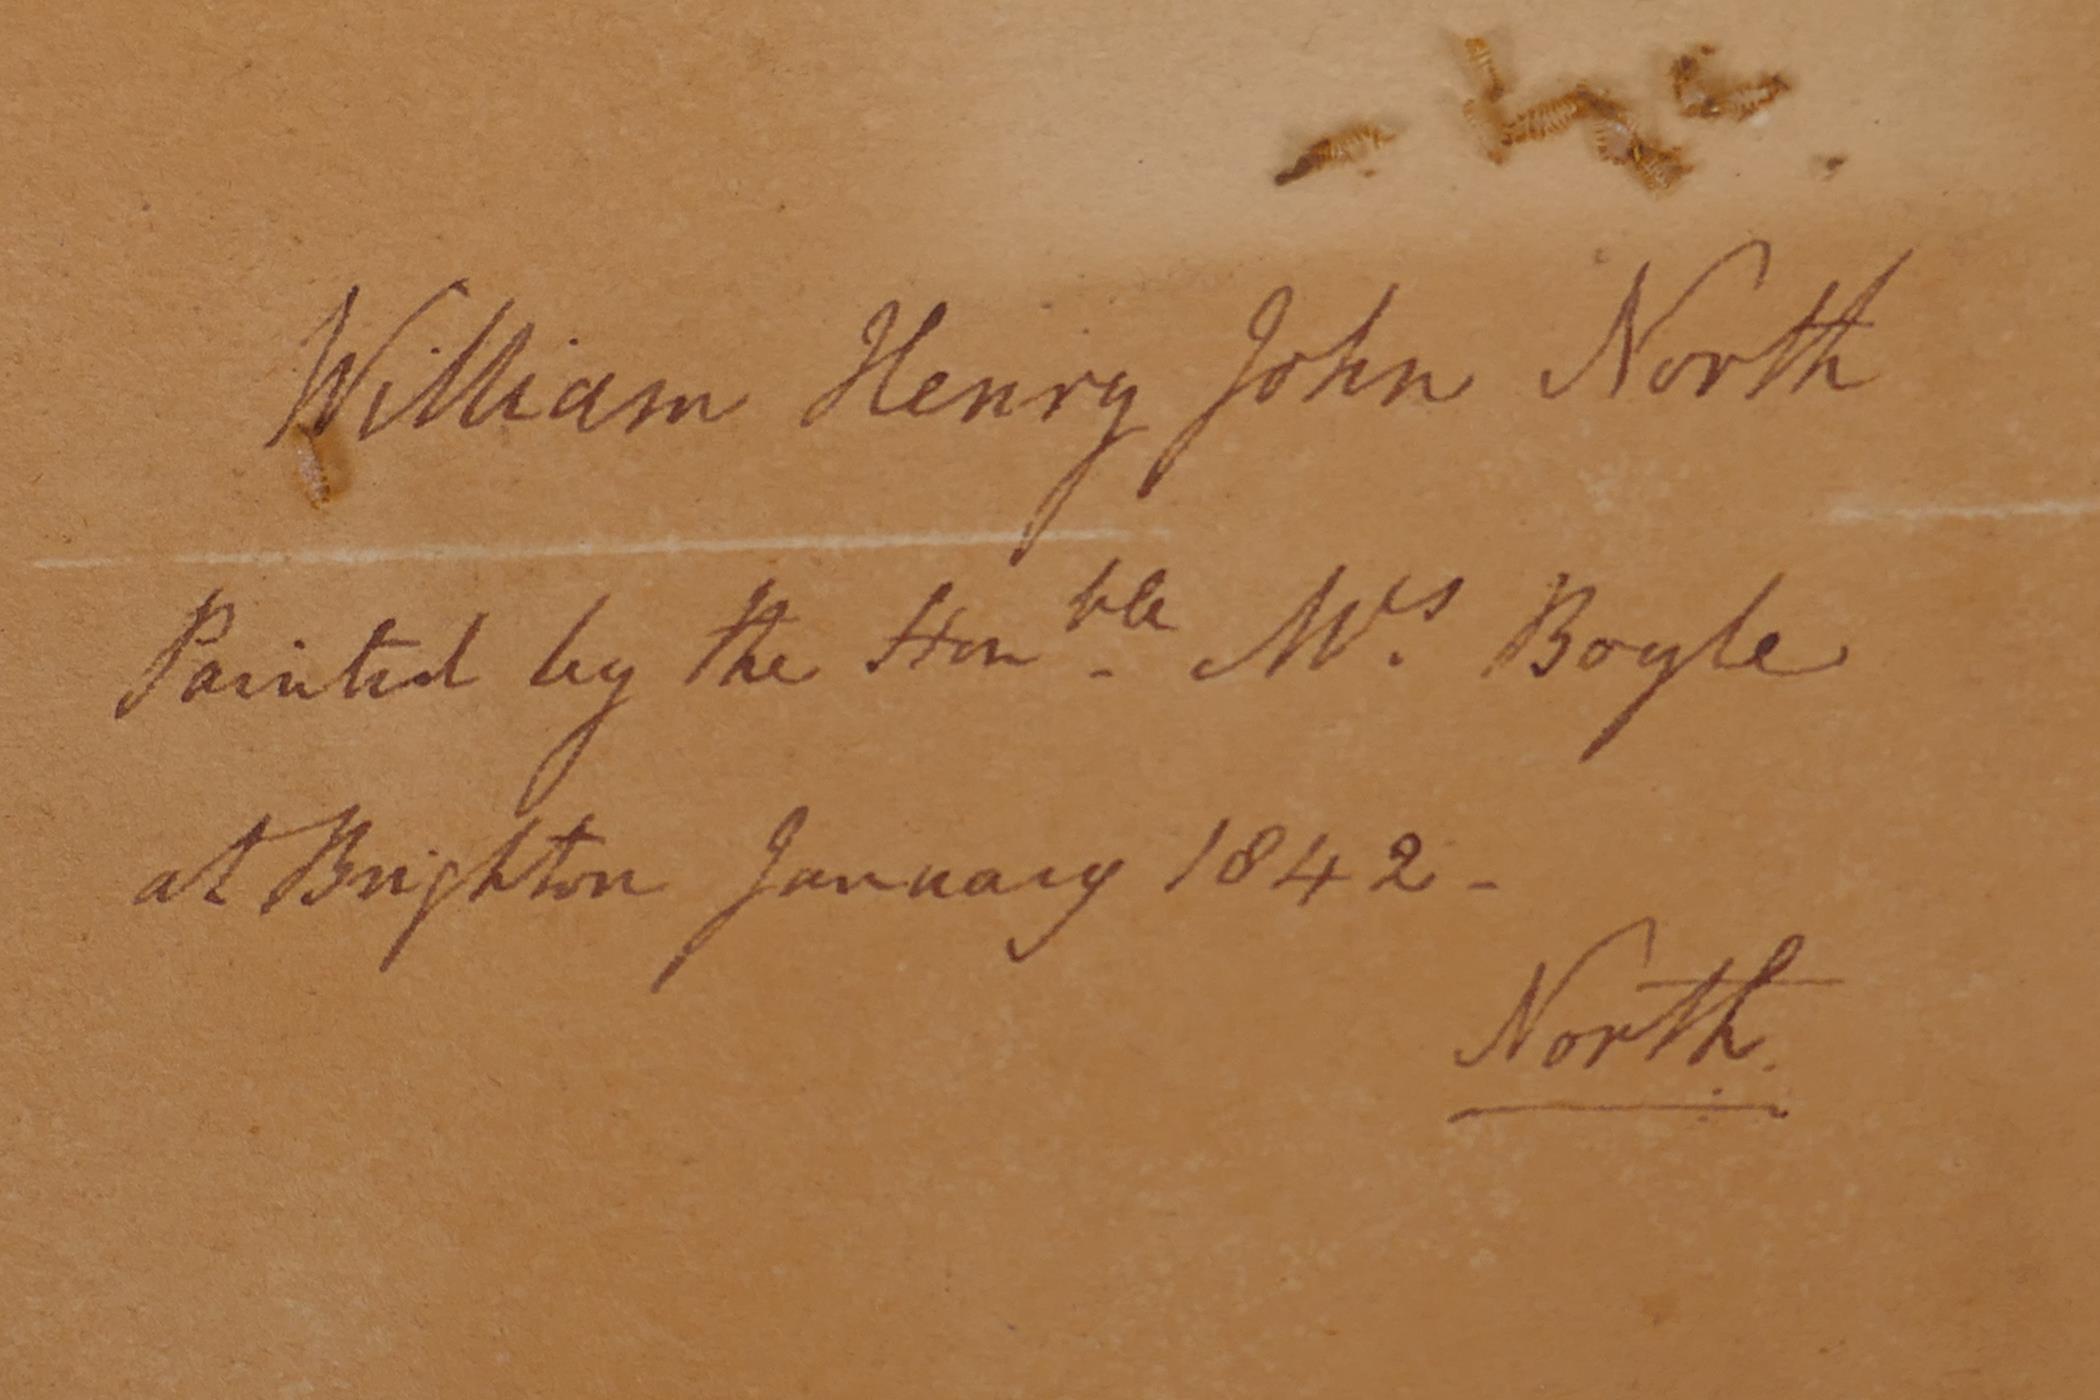 William Henry John North
Painted by the Honble Mrs. Boyle
at Brighton January 1842 -
North.